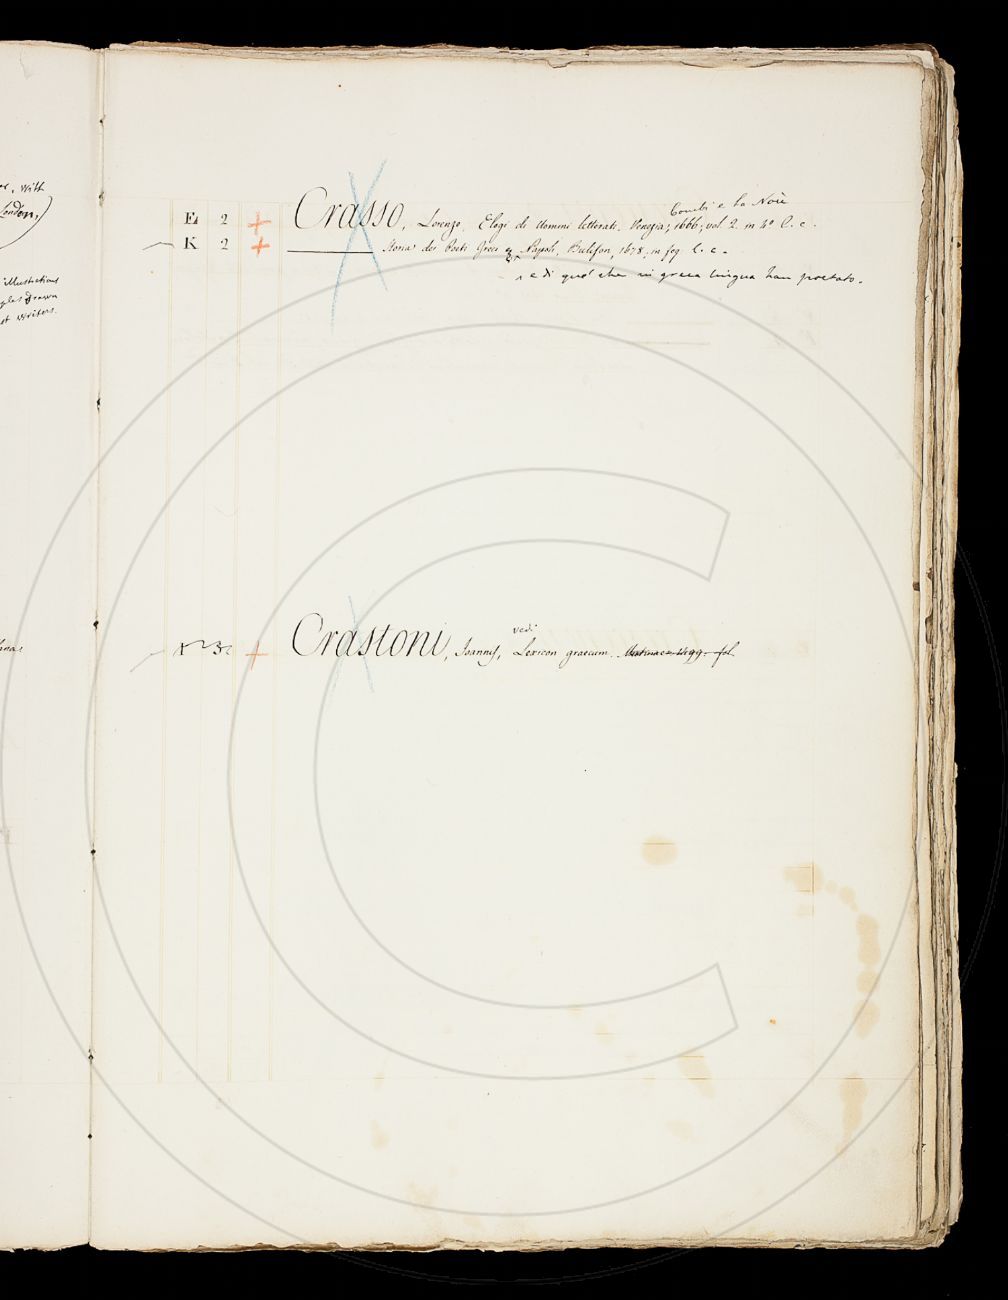 er, with
London,)
illustrations
ples drawn
et writers.
Combi e la Noù
E 2 + Crasso, Lorenzo, Elogi di Uomini letterati. Venezia, 1666, vol 2. in 4º l. c.
K 2 + ——— Storia dei Poeti Greci Napoli, Bulifon, 1678. in fog. l. c.
e di que' che in greca lingua han poetato.
vedi
+ Crastoni, Joannes, Lexicon graecum. Mutinae 1499. fol.